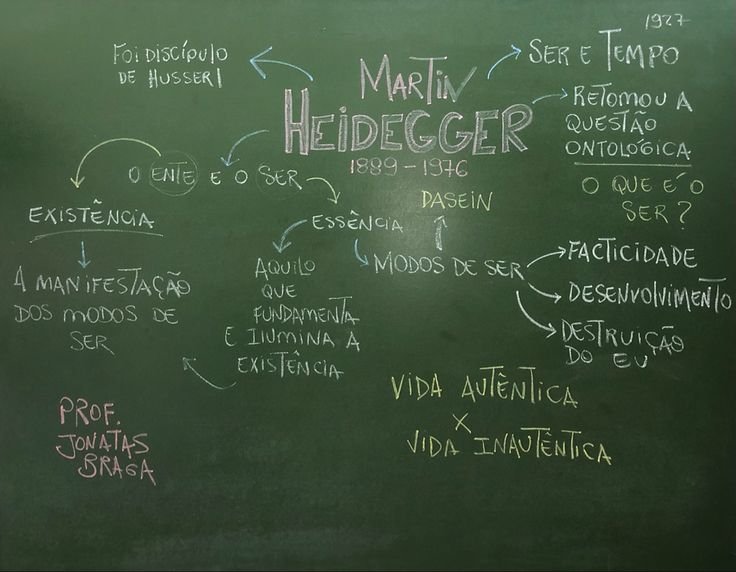 1927
FOI DISCÍPULO
DE HUSSERL
MARTIN
HEIDEGGER
1889-1976
SER E TEMPO
RETOMOU A
QUESTÃO
ONTOLÓGICA
O QUE É O
SER?
O ENTE E O SER
DASEIN
EXISTÊNCIA
ESSÊNCIA
A MANIFESTAÇÃO
DOS MODOS DE
SER
AQUILO
QUE
FUNDAMENTA
E ILUMINA A
EXISTÊNCIA
MODOS DE SER
FACTICIDADE
DESENVOLVIMENTO
DESTRUIÇÃO
DO EU
VIDA AUTÊNTICA
X
VIDA INAUTÊNTICA
PROF.
JONATAS
BRAGA